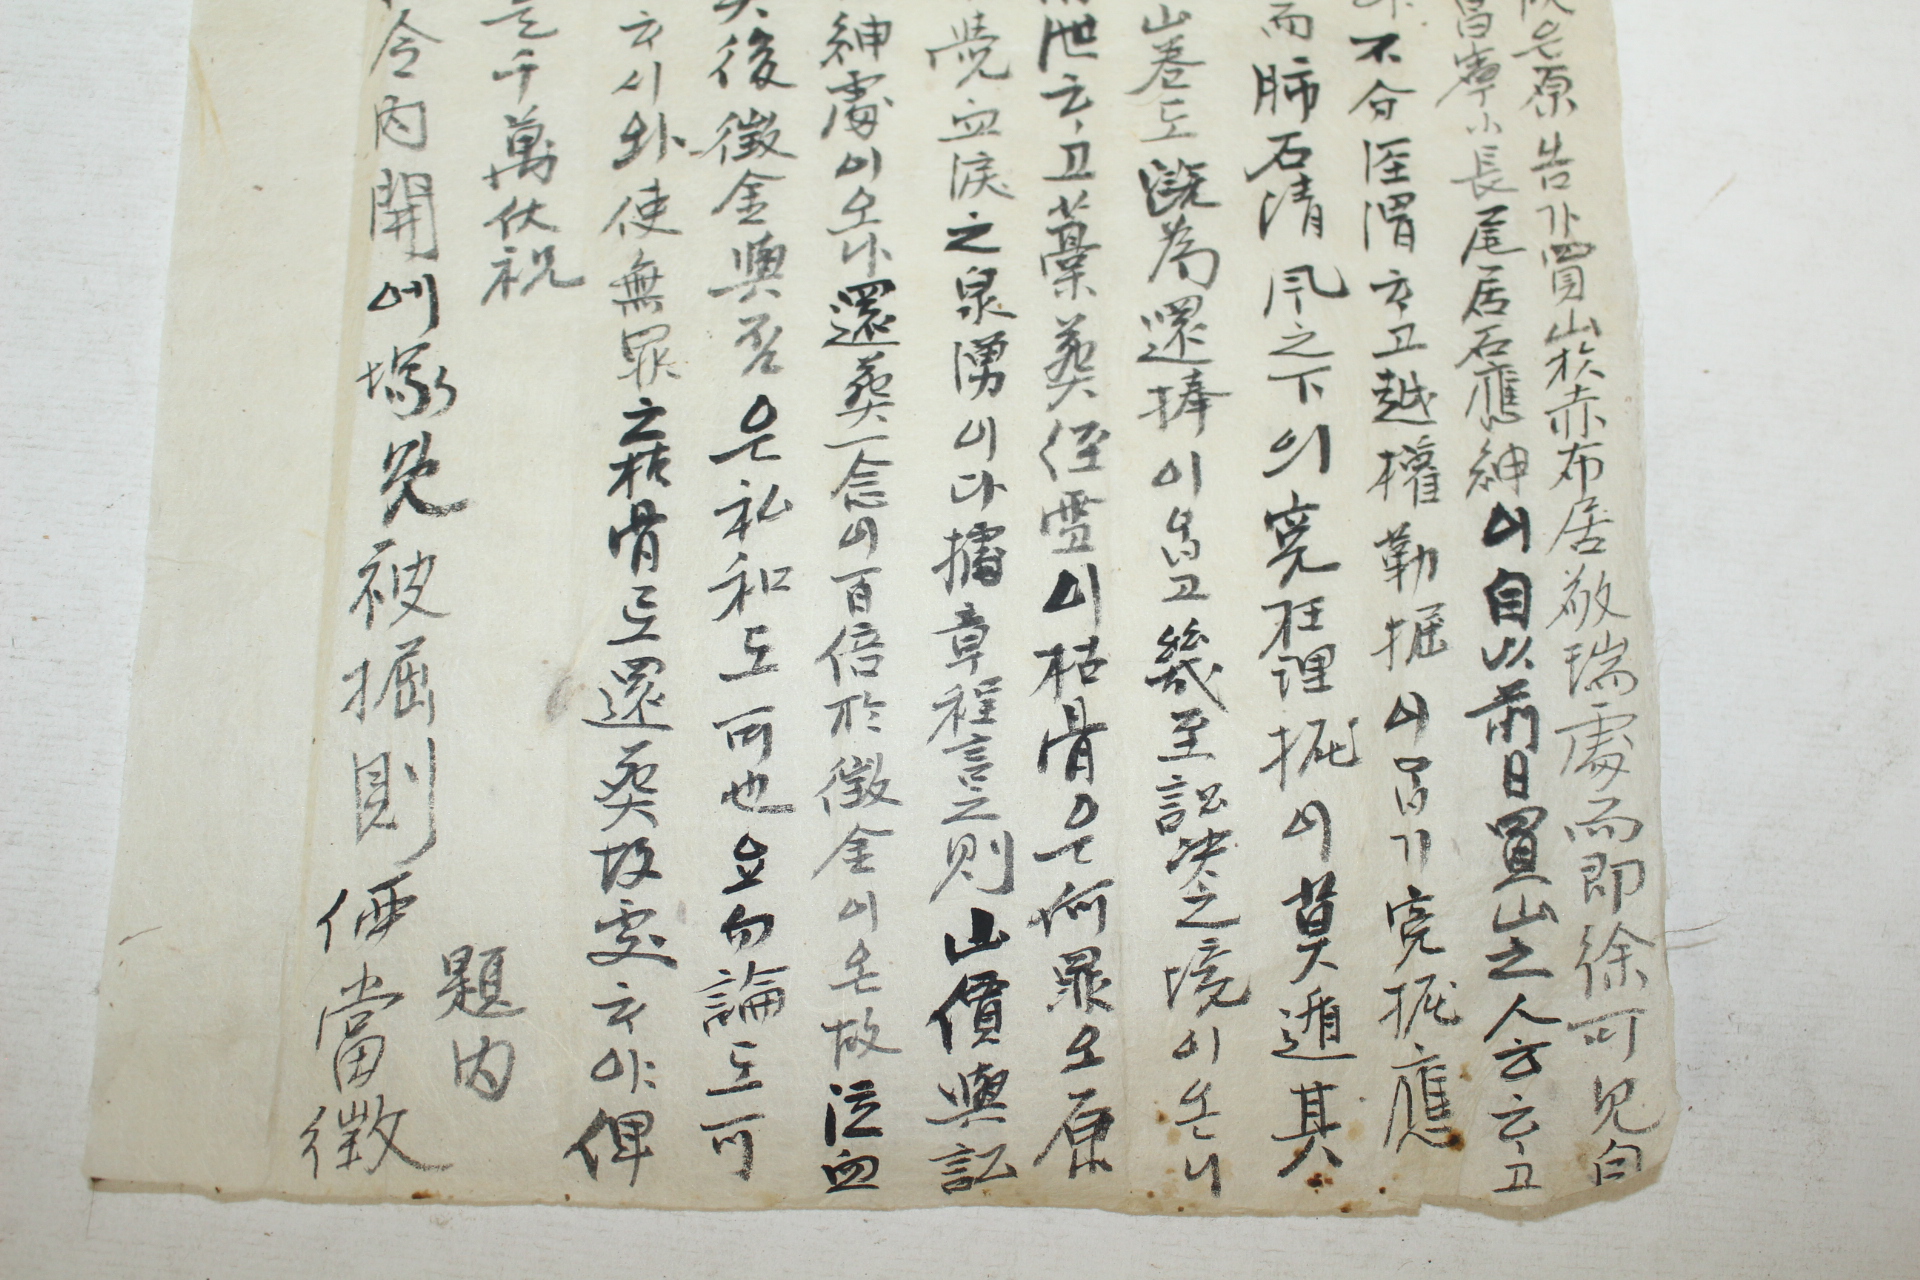 은原告가買山於赤布居敬瑞處而即徐可見白
昌寧小長尾居石應紳이自以前日買山之人方云고
不分涇渭云고越權勒掘이음기寃掘應
而肺石淸風之下의寃枉理掘이莫遁其
山卷도斲爲還捧이옵고幾至訟決之境이온니
泄云고藁葬徑雪이枯骨은何罪오原
覺血淚之泉湧이다據章程言之則山價與訟
紳處이오나還葬一念이百倍於徵金이온故泣血
後徵金與否은私和도可也요勿論도可
云시와使無罪之枯骨도還葬故處云야俾
千萬伏祝
題內
令內開에塚兒被掘則価當徵